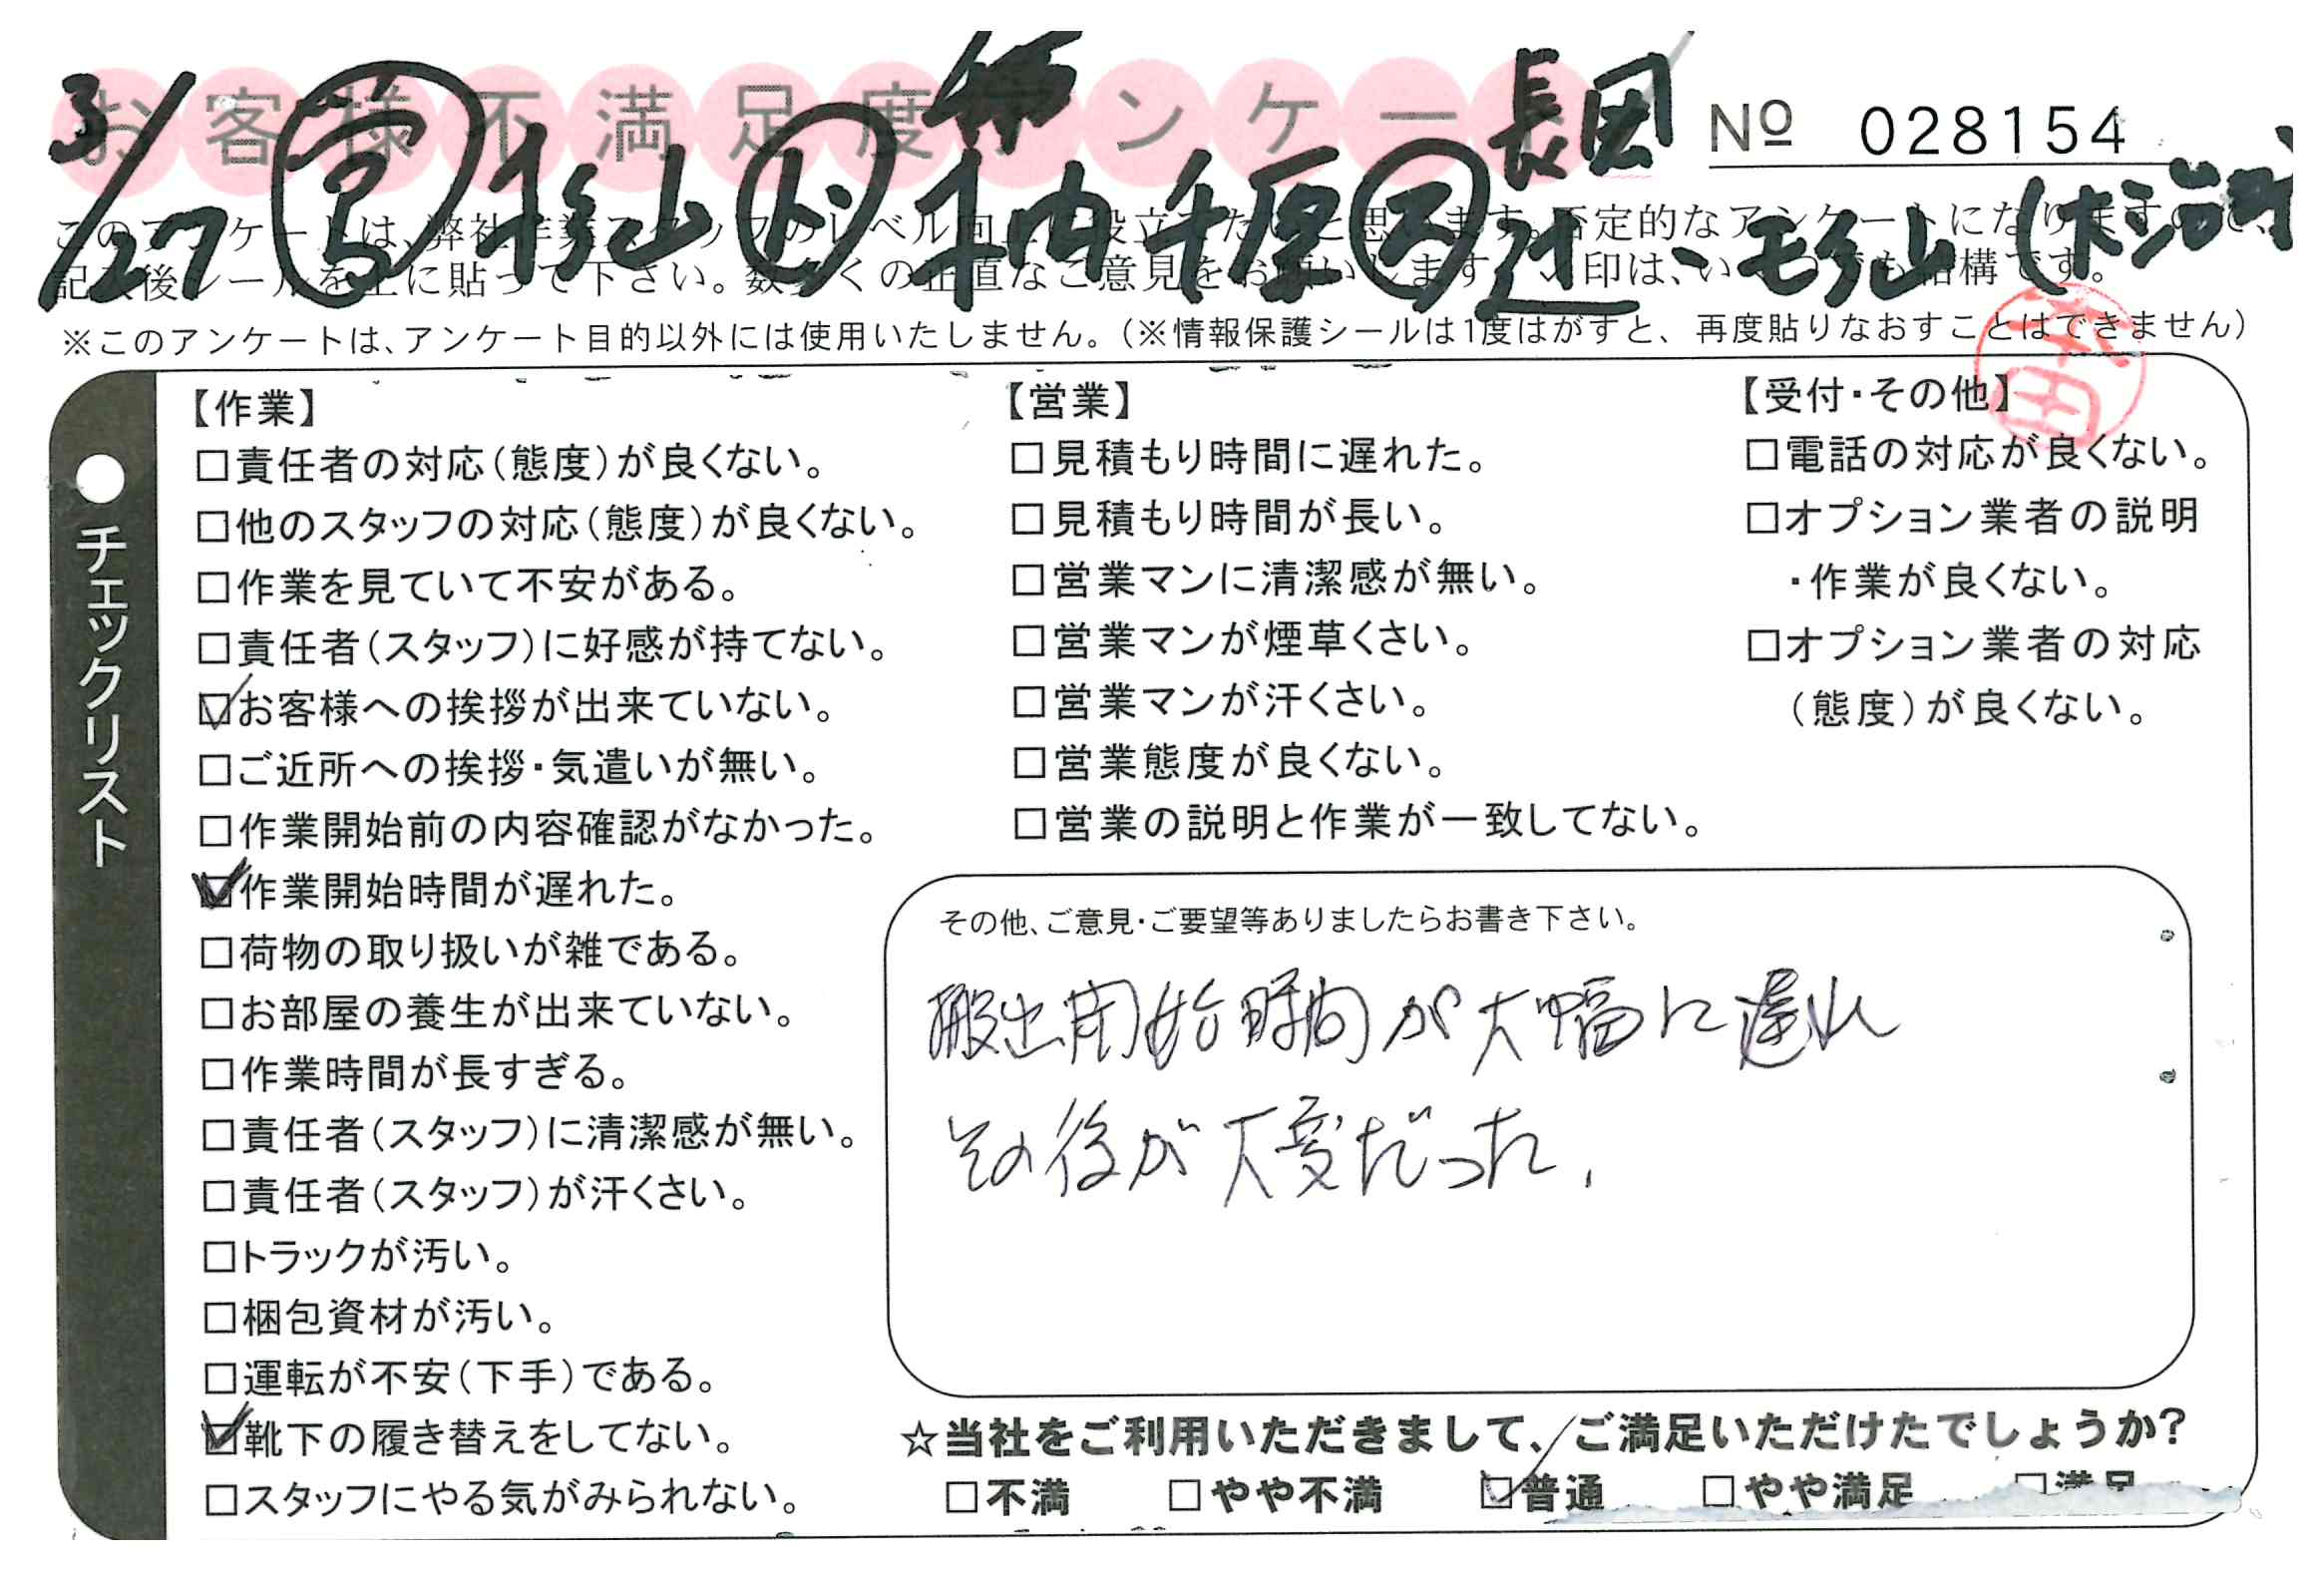 お客様不満足度アンケート
№ 028154
3/27 杉山 千原 長田 辻 杉山 (大治町
このアンケートは、弊社作業スタッフのレベル向上に役立てたいと思います。否定的なアンケートになりますので、
記入後シールを上に貼って下さい。数多くの正直なご意見をお願いします。✓印は、いくつでも結構です。
※このアンケートは、アンケート目的以外には使用いたしません。(※情報保護シールは1度はがすと、再度貼りなおすことはできません)
●チェックリスト
【作業】
□責任者の対応(態度)が良くない。
□他のスタッフの対応(態度)が良くない。
□作業を見ていて不安がある。
□責任者(スタッフ)に好感が持てない。
☑お客様への挨拶が出来ていない。
□ご近所への挨拶・気遣いが無い。
□作業開始前の内容確認がなかった。
☑作業開始時間が遅れた。
□荷物の取り扱いが雑である。
□お部屋の養生が出来ていない。
□作業時間が長すぎる。
□責任者(スタッフ)に清潔感が無い。
□責任者(スタッフ)が汗くさい。
□トラックが汚い。
□梱包資材が汚い。
□運転が不安(下手)である。
☑靴下の履き替えをしてない。
□スタッフにやる気がみられない。
【営業】
□見積もり時間に遅れた。
□見積もり時間が長い。
□営業マンに清潔感が無い。
□営業マンが煙草くさい。
□営業マンが汗くさい。
□営業態度が良くない。
□営業の説明と作業が一致してない。
【受付・その他】
□電話の対応が良くない。
□オプション業者の説明
・作業が良くない。
□オプション業者の対応
(態度)が良くない。
その他、ご意見・ご要望等ありましたらお書き下さい。
搬出開始時間が大幅に遅れ
その後が大変だった.
☆当社をご利用いただきまして、ご満足いただけたでしょうか?
□不満 □やや不満 ☑普通 □やや満足 □満足